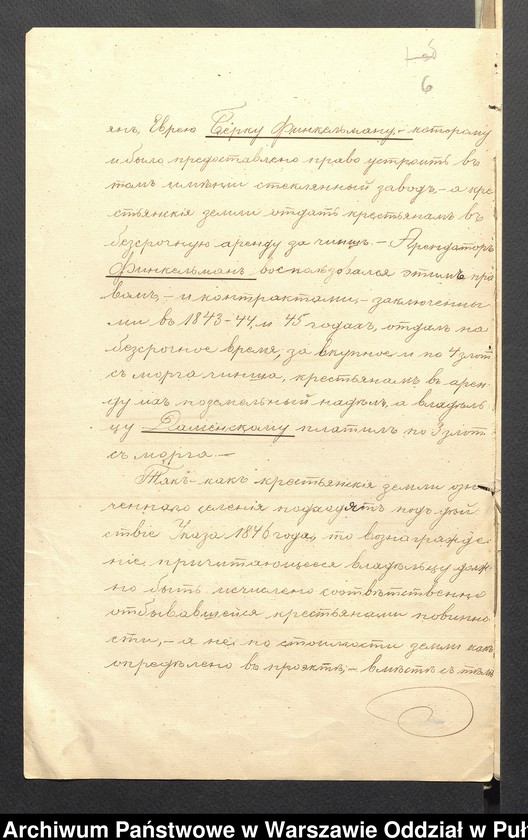 6
янъ, Еврею Берку Финкельману,- которому
и было предоставлено право устроить въ
томъ имѣніи стеклянный заводъ,- а кре
стьянскія земли отдать крестьянамъ въ
безсрочную аренду за чиншъ.- Арендаторъ
Финкельманъ воспользовался этимъ пра
вомъ,- и контрактами,- заключенны
ми въ 1843-44, и 45 годахъ, отдалъ на
безсрочное время, за вкупное и по 4 злот
съ морга чинша, крестьянамъ въ арен-
ду ихъ поземельный надѣлъ, а владѣль
цу Даменскому платилъ по 3 злот.
съ морга.-
Такъ-какъ крестьянскія земли озна
ченнаго селенія подходятъ подъ дѣй
ствіе Указа 1846 года, то вознагражде
ніе, причитающееся владѣльцу долж
но быть исчислено соотвѣтственно
отбывавшейся крестьянами повинно
сти,- а не по стоимости земли какъ
опредѣлено въ проэктѣ,- вмѣстѣ съ тѣмъ
Archiwum Państwowe w Warszawie Oddział w Puł